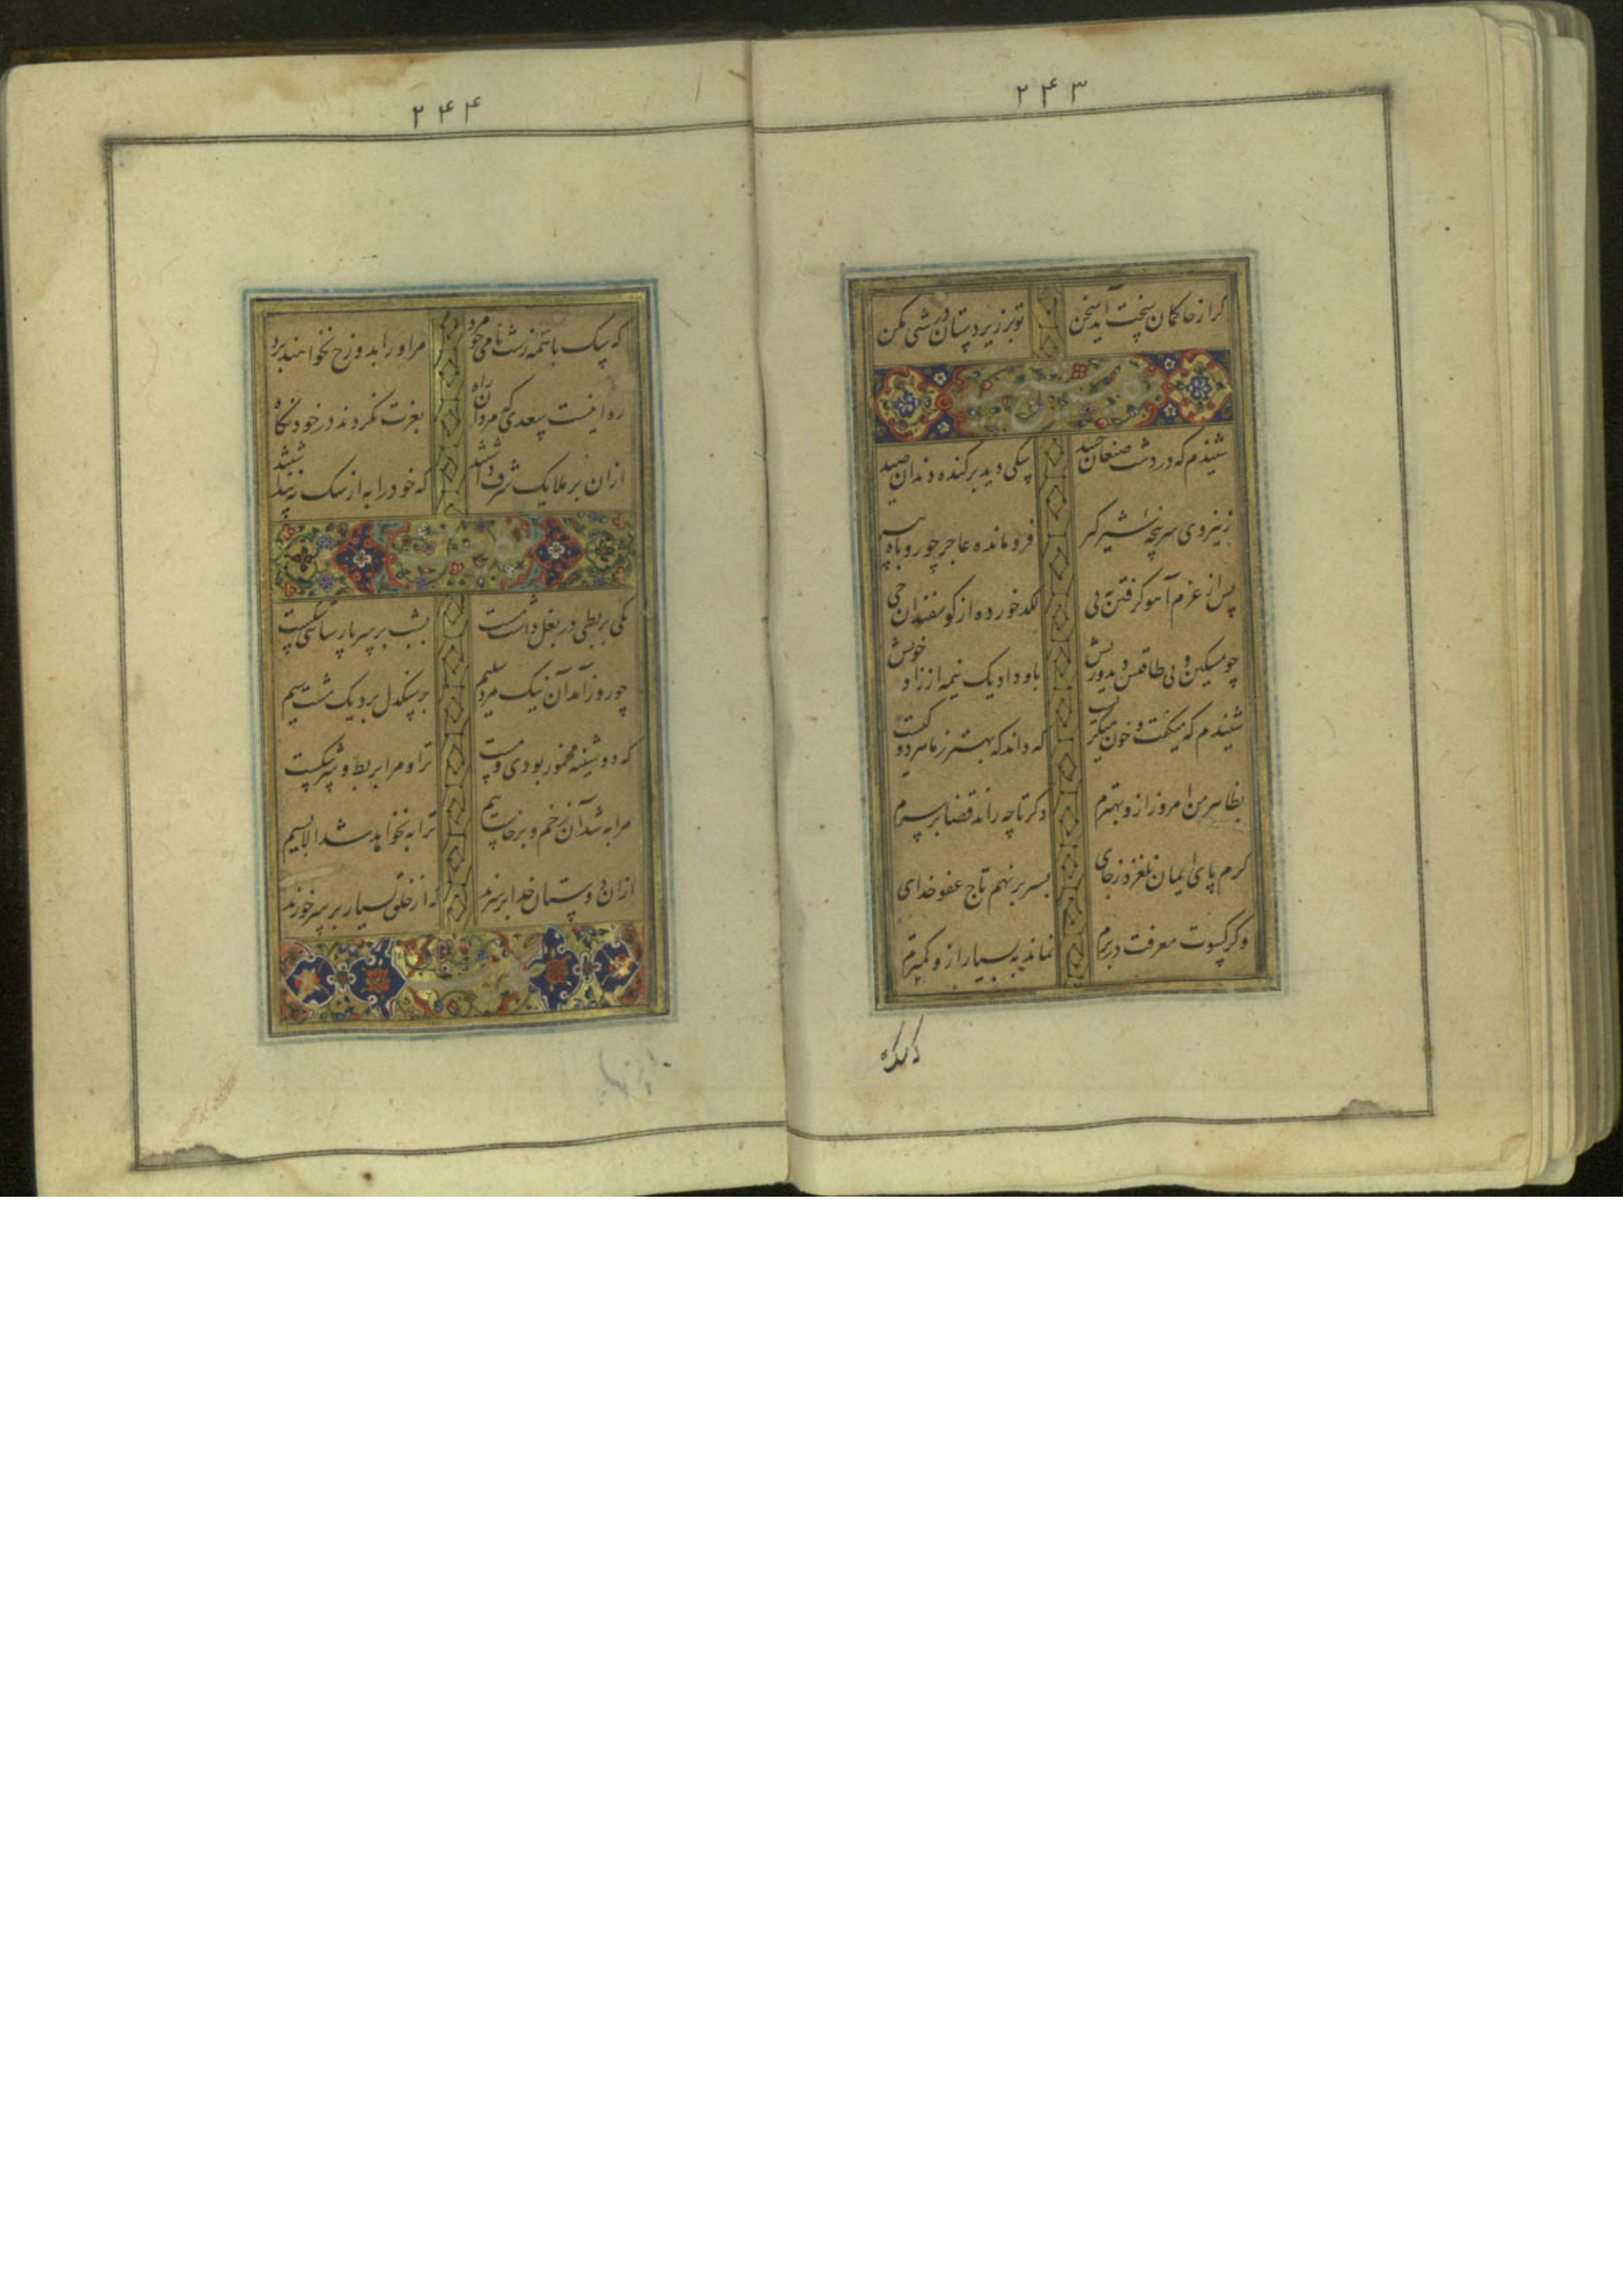 ۲۴۳
گر از حاکمان سختت آید سخن تو بر زیردستان درشتی مکن
شنیدم که در دشت صنعان جنید سگی دید برکنده دندان صید
ز نیروی سرپنجهٔ شیرگیر فرومانده عاجز چو روباه پیر
پس از غرم آهو گرفتن به پی لگد خورده از گوسفندان حی
چو مسکین و بی طاقتش دید و ریش باو داد یک نیمه از زاد خویش
شنیدم که میگفت و خون میگریست که داند که بهتر ز ما هر دو کیست
بظاهر من امروز ازو بهترم دگر تا چه راند قضا بر سرم
گرم پای ایمان نلغزد ز جای بسر بر نهم تاج عفو خدای
وگر کسوت معرفت در برم نماند به بسیار ازو کمترم
۲۴۴
که سگ با همه زشت نامی چو مرد مر او را بدوزخ نخواهند برد
ره اینست سعدی که مردان راه بعزت نکردند در خود نگاه
ازان بر ملایک شرف داشتند که خود را به از سگ نپنداشتند
یکی بربطی در بغل داشت مست بشب بر سر پارسائی شکست
چو روز آمد آن نیک مرد سلیم بر سنگدل برد یک مشت سیم
که دوشینه مخمور بودی و مست ترا و مرا بربط و سر شکست
مرا به شد آن زخم و برخاست بیم ترا به نخواهد شد الا بسیم
ازان دوستان خدا بر سرند که از خلق بسیار بر سر خورند